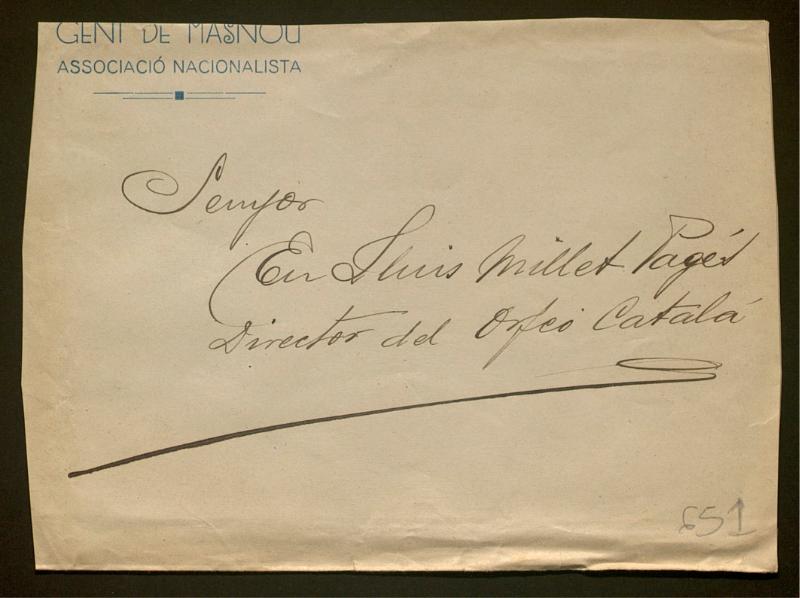 GENT DE MASNOU
ASSOCIACIÓ NACIONALISTA
Senyor
En Lluis Millet Pagés
Director del Orfeó Catalá
651